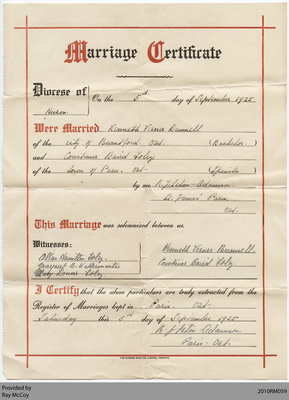 Marriage Certificate
Diocese of
Huron
On the 5th day of September 1925
Were Married Kenneth Verner Bunnell
of the City of Brantford, Ont. (Bachelor)
and Constance Baird Foley
of the town of Paris. Ont (Spinster)
by me R. J. Seton-Adamson
St. James' Paris.
Ont.
This Marriage was solemnized between us.
Witnesses:
Allen Hamilton Foley.
Margaret B.
Mary Louise Foley
Kenneth Verner Bunnell
Constance Baird Foley.
I Certify that the above particulars are truly extracted from the
Register of Marriages kept in Paris. Ont.
Saturday this 5th day of September 1925
R. J. Seton Adamson
Paris. Ont.
Provided by
Ray McCoy
2010RM059